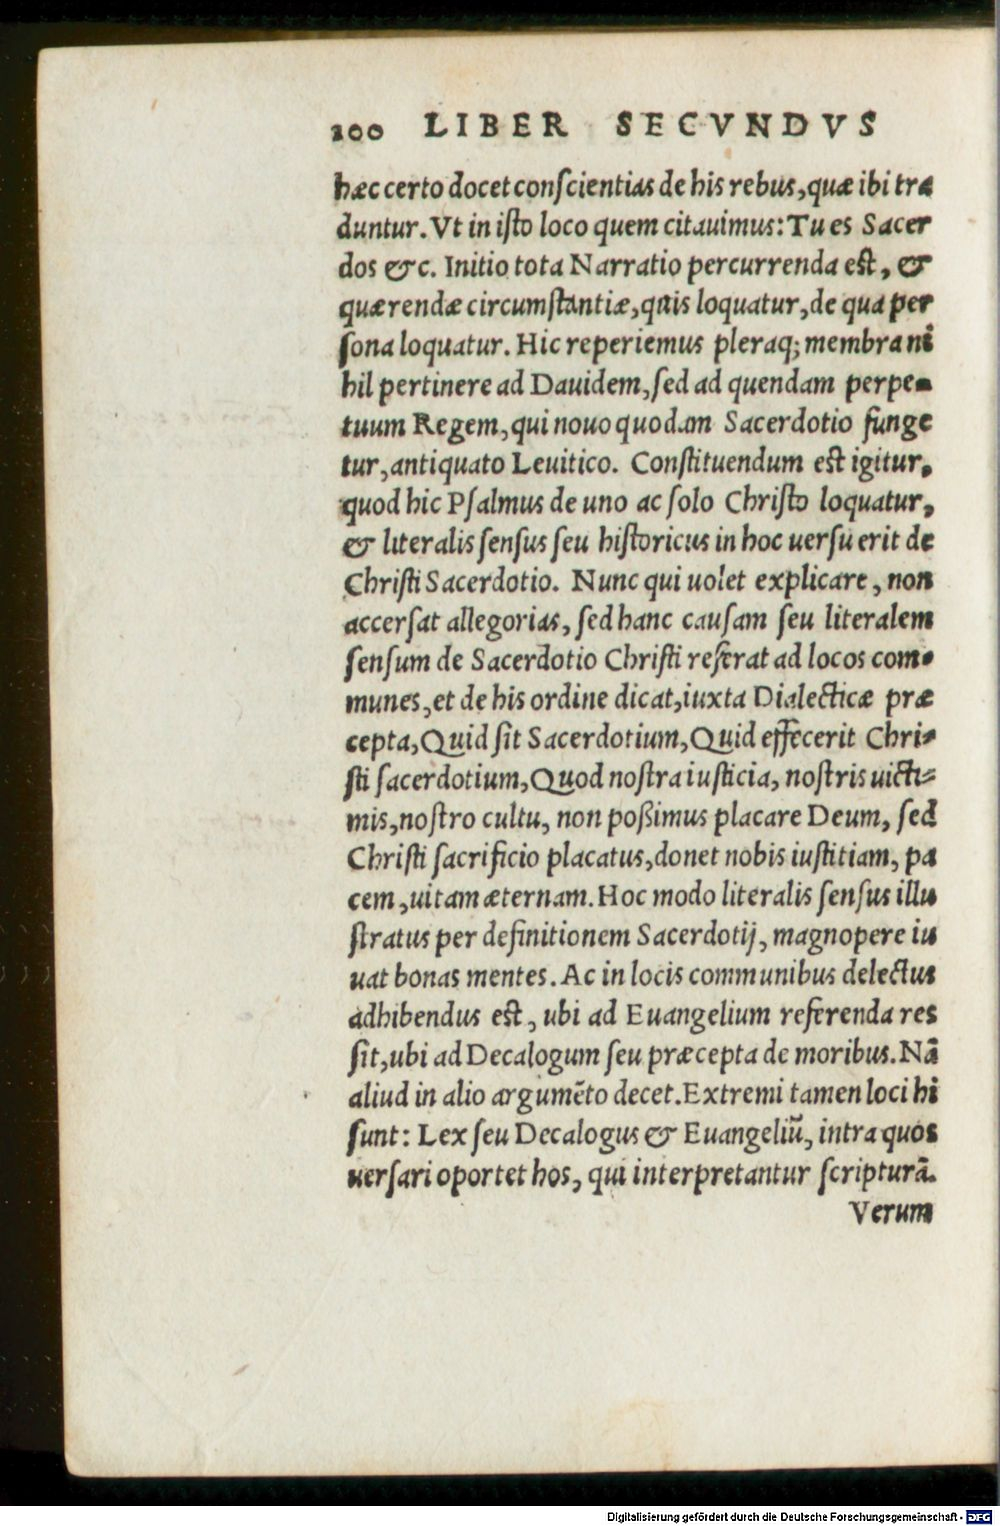 200 LIBER SECVNDVS
hæc certo docet conſcientias de his rebus, quæ ibi tra
duntur. Vt in iſto loco quem citauimus: Tu es Sacer
dos &c. Initio tota Narratio percurrenda eſt, &
quærendæ circumſtantiæ, quis loquatur, de qua per
ſona loquatur. Hic reperiemus pleraq; membra ni
hil pertinere ad Dauidem, ſed ad quendam perpe-
tuum Regem, qui nouo quodam Sacerdotio funge
tur, antiquato Leuitico. Conſtituendum eſt igitur,
quod hic Pſalmus de uno ac ſolo Chriſto loquatur,
& literalis ſenſus ſeu hiſtoricus in hoc uerſu erit de
Chriſti Sacerdotio. Nunc qui uolet explicare, non
accerſat allegorias, ſed hanc cauſam ſeu literalem
ſenſum de Sacerdotio Chriſti referat ad locos com-
munes, et de his ordine dicat, iuxta Dialecticæ præ
cepta, Quid ſit Sacerdotium, Quid effecerit Chri-
ſti ſacerdotium, Quod noſtra iuſticia, noſtris uicti-
mis, noſtro cultu, non poßimus placare Deum, ſed
Chriſti ſacrificio placatus, donet nobis iuſtitiam, pa
cem, uitam æternam. Hoc modo literalis ſenſus illu
ſtratus per definitionem Sacerdotij, magnopere iu
uat bonas mentes. Ac in locis communibus delectus
adhibendus eſt, ubi ad Euangelium referenda res
ſit, ubi ad Decalogum ſeu præcepta de moribus. Nā
aliud in alio argumēto decet. Extremi tamen loci hi
ſunt: Lex ſeu Decalogus & Euangeliū, intra quos
uerſari oportet hos, qui interpretantur ſcripturā.
Verum
Digitalisierung gefördert durch die Deutsche Forschungsgemeinschaft - DFG